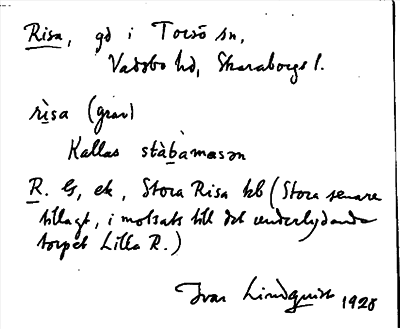 Risa, gd i Torsö sn,
Vadsbo hd, Skaraborgs l.
rìsa (grav)
Kallas stàbàmasən
R. G, ek, Stora Risa kb (Stora senare
tillagt, i motsats till det underlydande
torpet Lilla R.)
Ivar Lindquist 1925